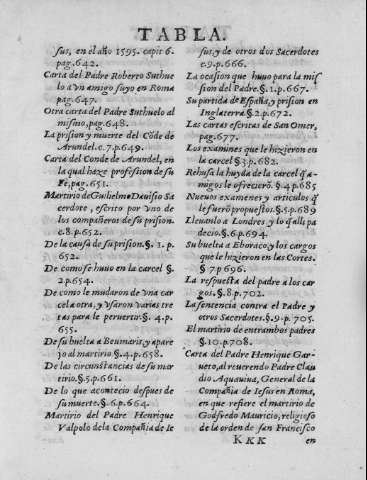 TABLA.
sus, en el año 1595. capit 6.
pag. 642.
Carta del Padre Roberto Suthue
lo a vn amigo suyo en Roma
pag. 647.
Otra carta del Padre Suthuelo al
mismo, pag. 648.
La prision y muerte del Cõde de
Arundel. c. 7. p. 649.
Carta del Conde de Arundel, en
la qual haze professsion de su
Fè, pag. 651.
Martirio de Guilielmo Dauiso Sa
cerdote, escrito por vno de
los compañeros de su prision.
c. 8. p. 652.
De la causa de su prision. §. 1. p.
652.
De como se huuo en la carcel §.
2. p. 654.
De como le mudaron de vna car
cel a otra, y vsaron varias tre
tas para le peruertir §. 4. p.
655.
De su buelta a Beumaris, y apare
jo al martirio §. 4. p. 658.
De las circunstancias de su mar
tirio. §. 5. p. 661.
De lo que acontecio despues de
su muerte. §. 6. p. 664.
Martirio del Padre Henrique
Valpolo de la Compañia de Ie
sus, y de otros dos Sacerdotes
c. 9. p. 666.
La ocasion que huuo para la mis
sion del Padre. §. 1. p. 667.
Su partida de España, y prision en
Inglaterra §. 2. p. 672.
Las cartas escritas de San Omer,
pag. 677.
Los examines que le hizieron en
la carcel §. 3. p. 682.
Rehusa la huyda de la carcel q̃ a-
migos le ofreciẽrõ. §. 4. p. 685
Nueuos examenes y articulos q̃
le fuerõ propuestos. §. 5. p. 689
Lleuanlo a Londres, y lo q̃ alli pa
decio. §. 6. p. 694.
Su buelta a Eboraco, y los cargos
que le hizieron en las Cortes.
§ 7 p. 696.
La respuesta del padre a los car
gos. §. 8. p. 702.
La sentencia contra el Padre y
otros Sacerdotes. §. 9. p. 705.
El martirio de entrambos padres
§. 10. p. 708.
Carta del Padre Henrique Gar-
ueto, al reuerendo Padre Clau
dio Aquauiua, General de la
Compañia de Iesus en Roma,
en que refiere el martirio de
Godfredo Mauricio, religioso
de la orden de san Francisco
KKK en